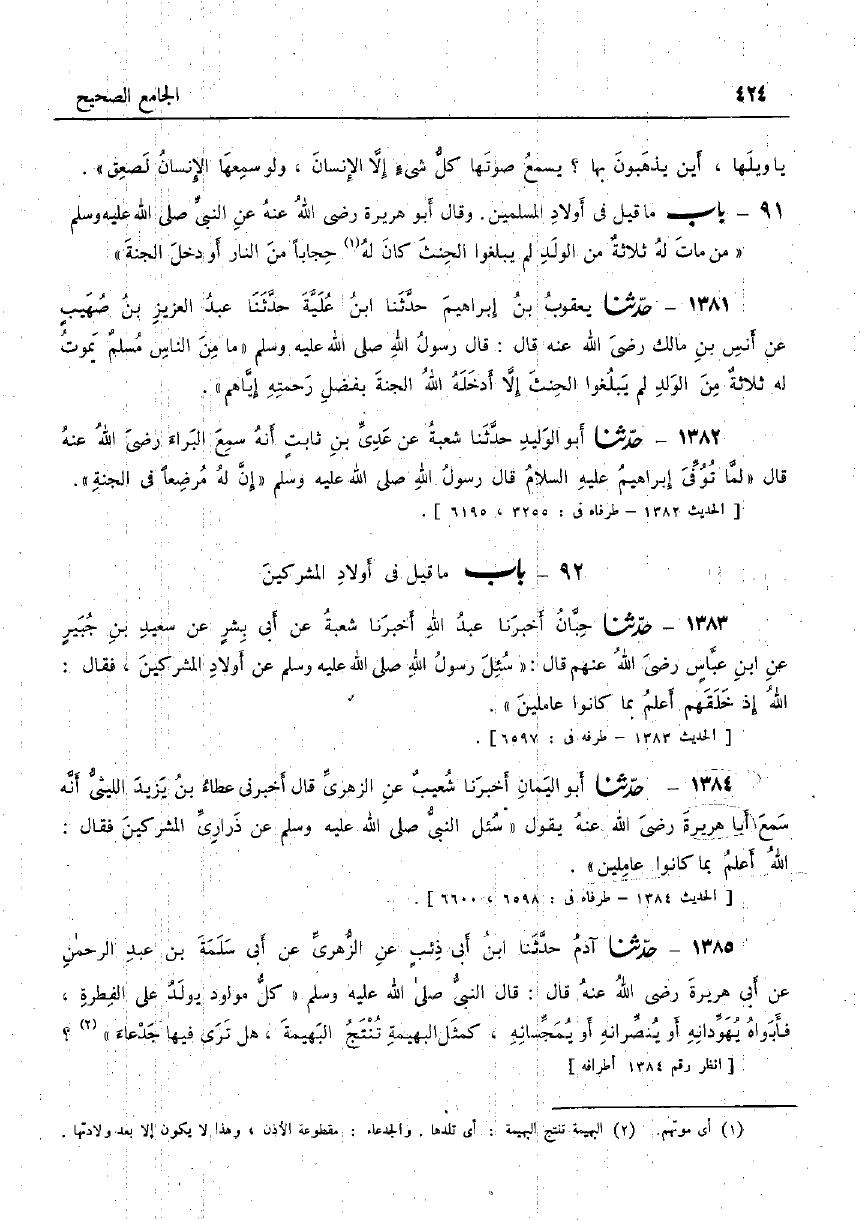 ٤٢٤ الجامع الصحيح
ياويلَها ، أَين يذهَبونَ بها ؟ يسمعُ صوتَها كلُّ شىءٍ إلَّا الإنسانَ ، ولو سمِعهَا الإنسانُ لَصعِق» .
٩١ – باب ماقيل فى أولادِ المسلمين. وقال أَبو هريرة رضى اللهُ عنهُ عنِ النبىِّ صلى الله عليه وسلم
« من ماتَ لهُ ثلاثةٌ من الولَدِ لم يبلغوا الحِنثَ كانَ لهُ(١) حِجاباً منَ النار أَو دخلَ الجنةَ»
١٣٨١ – حدّثنا يعقوبُ بنُ إبراهيمَ حدَّثَنا ابنُ عُلَيَّةَ حدَّثَنَا عبدُ العزيزِ بنُ صُهَيبٍ
عن أَنسِ بنِ مالك رضىَ الله عنه قال : قال رسولُ اللهِ صلى الله عليه وسلم «ما مِنَ الناسِ مُسلمٌ يَموتُ
له ثلاثةٌ مِنَ الوَلدِ لم يَبلُغوا الحِنثَ إلَّا أَدخَلَهُ اللهُ الجنةَ بفضلِ رَحمتِهِ إيَّاهم» .
١٣٨٢ – حدّثنا أَبو الوَليدِ حدَّثَنا شعبةُ عن عَدِىِّ بنِ ثابتٍ أَنهُ سمِعَ البَراءَ رضىَ اللهُ عنهُ
قال «لمَّا تُوُفِّىَ إبراهيمُ عليهِ السلامُ قال رسولُ اللهِ صلى الله عليه وسلم «إنَّ لهُ مُرضِعاً فى الجنةِ».
[ الحديث ١٣٨٢ – طرفاه فى : ٣٢٥٥ ، ٦١٩٥ ] .
٩٢ – باب ماقيل فى أَولادِ المشركينَ
١٣٨٣ – حدّثنا حِبَّانُ أَخبرَنا عبدُ اللهِ أَخبرَنا شعبةُ عن أَبى بِشرٍ عن سعيدِ بنِ جُبَيرٍ
عنِ ابنِ عبَّاسٍ رضىَ اللهُ عنهم قال : « سُئِلَ رسولُ اللهِ صلى الله عليه وسلم عن أَولادِ المشركينَ ، فقال :
اللهُ إذ خَلَقَهم أَعلمُ بما كانوا عاملينَ » .
[ الحديث ١٣٨٣ – طرفه فى : ٦٥٩٧ ] .
١٣٨٤ – حدّثنا أَبو اليَمانِ أَخبرَنا شُعيبٌ عنِ الزهرىِّ قال أَخبرنى عطاءُ بنُ يَزيدَ الليثىُّ أَنَّه
سَمعَ أَبا هريرةَ رضىَ الله عنهُ يقول « سُئل النبىُّ صلى الله عليه وسلم عن ذَرارِىِّ المشركينَ فقال :
اللهُ أَعلمُ بما كانوا عامِلين» .
[ الحديث ١٣٨٤ – طرفاه فى : ٦٥٩٨ ، ٦٦٠٠ ] .
١٣٨٥ – حدّثنا آدمُ حدَّثَنا ابنُ أَبى ذِئبٍ عنِ الزُّهرىِّ عن أَبى سَلَمَةَ بن عبدِ الرحمٰنِ
عن أَبي هريرةَ رضى اللهُ عنهُ قال : قال النبىُّ صلىٰ الله عليه وسلم « كلُّ مولود يولَدُ على الفِطرةِ ،
فأَبَواهُ يُهَوِّدانِهِ أَو يُنَصِّرانه أَو يُمَجِّسانِهِ ، كمثَلِ البهيمةِ تُنْتَجُ البَهيمةَ ، هل تَرَى فيها جَدْعاءَ » (٢) ؟
[ انظر رقم ١٣٨٤ أطرافه ]
(١) أى موتهم. (٢) البهيمة تنتج البهيمة : أى تلدها . والجدعاء : مقطوعة الأذن ، وهذا لا يكون إلا بعد ولادتها .